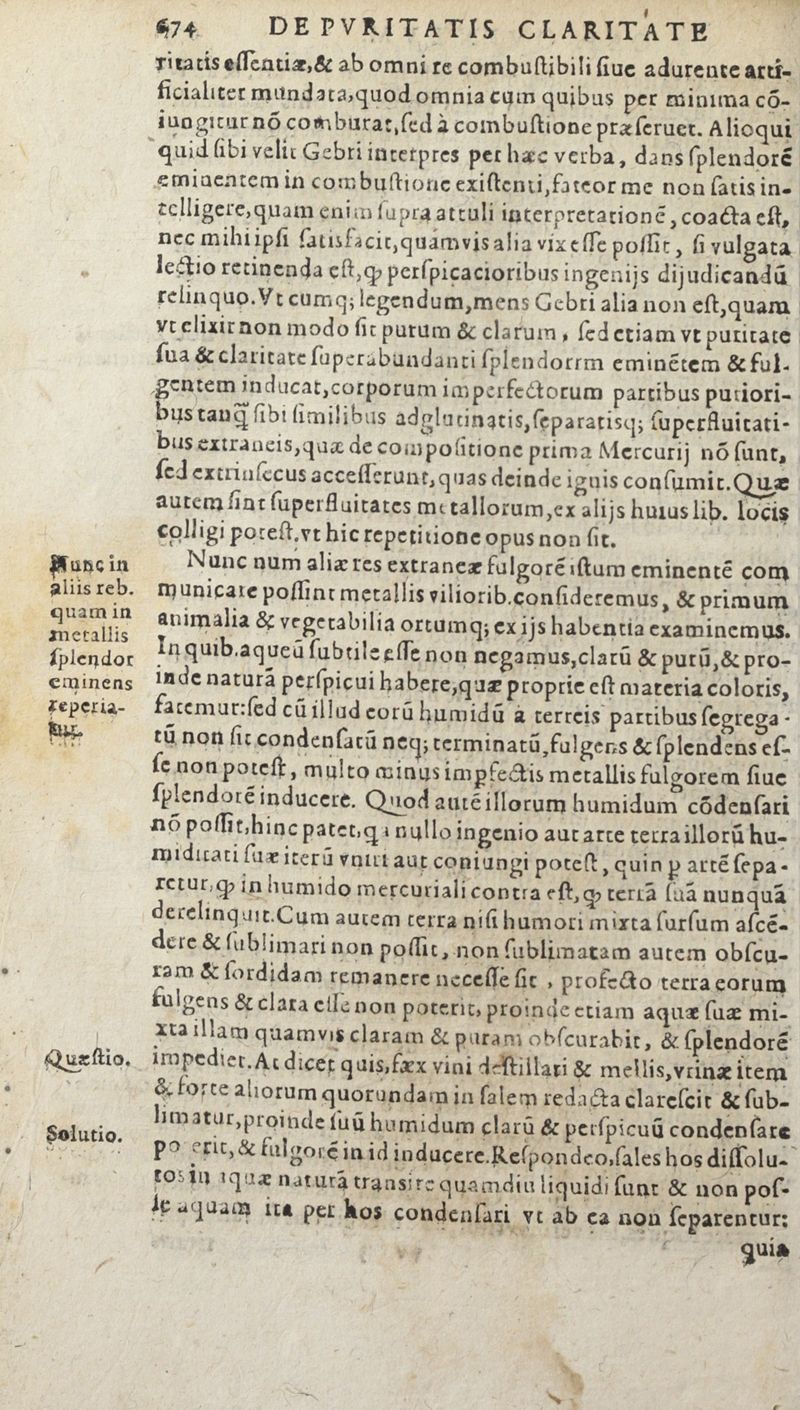 674 DE PVRITATIS CLARITATE
ritatis eſſentiæ,& ab omni re combuſtibili ſiue adurente arti-
ficialiter mundata,quod omnia cum quibus per minima cō-
iungitur nō comburat,ſed à combuſtione præſeruet. Alioqui
quid ſibi velit Gebri interpres per hæc verba, dans ſplendorē
eminentem in combuſtione exiſtenti,fateor me non ſatis in-
telligere,quam enim ſupra attuli interpretationē, coacta eſt,
nec mihi ipſi ſatisfacit,quámvis alia vix eſſe poſſit, ſi vulgata
lectio retinenda eſt,ꝙ perſpicacioribus ingenijs dijudicandū
relinquo.Vt cumq; legendum,mens Gebri alia non eſt,quam
vt elixir non modo ſit purum & clarum, ſed etiam vt puritate
ſua & claritate ſuperabundanti ſplendorrm eminētem & ful-
gentem inducat,corporum imperfectorum partibus puriori-
bus tanq̃ ſibi ſimilibus adglutinatis,ſeparatisq; ſuperfluitati-
bus extraneis,quæ de compoſitione prima Mercurij nō ſunt,
ſed extrinſecus acceſſerunt,quas deinde ignis conſumit.Quæ
autem ſint ſuperfluitates metallorum,ex alijs huius lib. locis
colligi poteſt,vt hic repetitione opus non ſit.
Nunc in
aliis reb.
quam in
metallis
ſplendor
eminens
reperia-
tur.
Nunc num aliæ res extraneæ fulgorē iſtum eminentē com
municare poſſint metallis viliorib.conſideremus, & primum
animalia & vegetabilia ortumq; ex ijs habentia examinemus.
In quib.aqueū ſubtile eſſe non negamus,clarū & purū,& pro-
inde naturā perſpicui habere,quæ proprie eſt materia coloris,
fatemur:ſed cū illud eorū humidū a terreis partibus ſegrega-
tū non ſit condenſatū neq; terminatū,fulgens & ſplendens eſ-
ſe non poteſt, multo minus impfectis metallis fulgorem ſiue
ſplendorē inducere. Quod autē illorum humidum cōdenſari
nō poſſit,hinc patet,qa nullo ingenio aut arte terra illorū hu-
miditati ſuæ iterū vniri aut coniungi poteſt, quin p artē ſepa-
retur,ꝙ in humido mercuriali contra eſt,ꝙ terrā ſuā nunquā
derelinquit.Cum autem terra niſi humori mixta ſurſum aſcē-
dere & ſublimari non poſſit, non ſublimatam autem obſcu-
ram & ſordidam remanere neceſſe ſit, profecto terra eorum
fulgens & clara eſſe non poterit, proinde etiam aquæ ſuæ mi-
xta illam quamvis claram & puram obſcurabit, & ſplendorē
Quæſtio.
impediet.At dicet quis,fæx vini deſtillati & mellis,vrinæ item
& forte aliorum quorundam in ſalem redacta clareſcit & ſub-
limatur,proinde ſuū humidum clarū & perſpicuū condenſare
Solutio.
po erit,& fulgorē in id inducere.Reſpondeo,ſales hos diſſolu-
tos in aquæ naturā tranſire quamdiu liquidi ſunt & non poſ-
ſe aquam ita per hos condenſari vt ab ea non ſeparentur:
quia